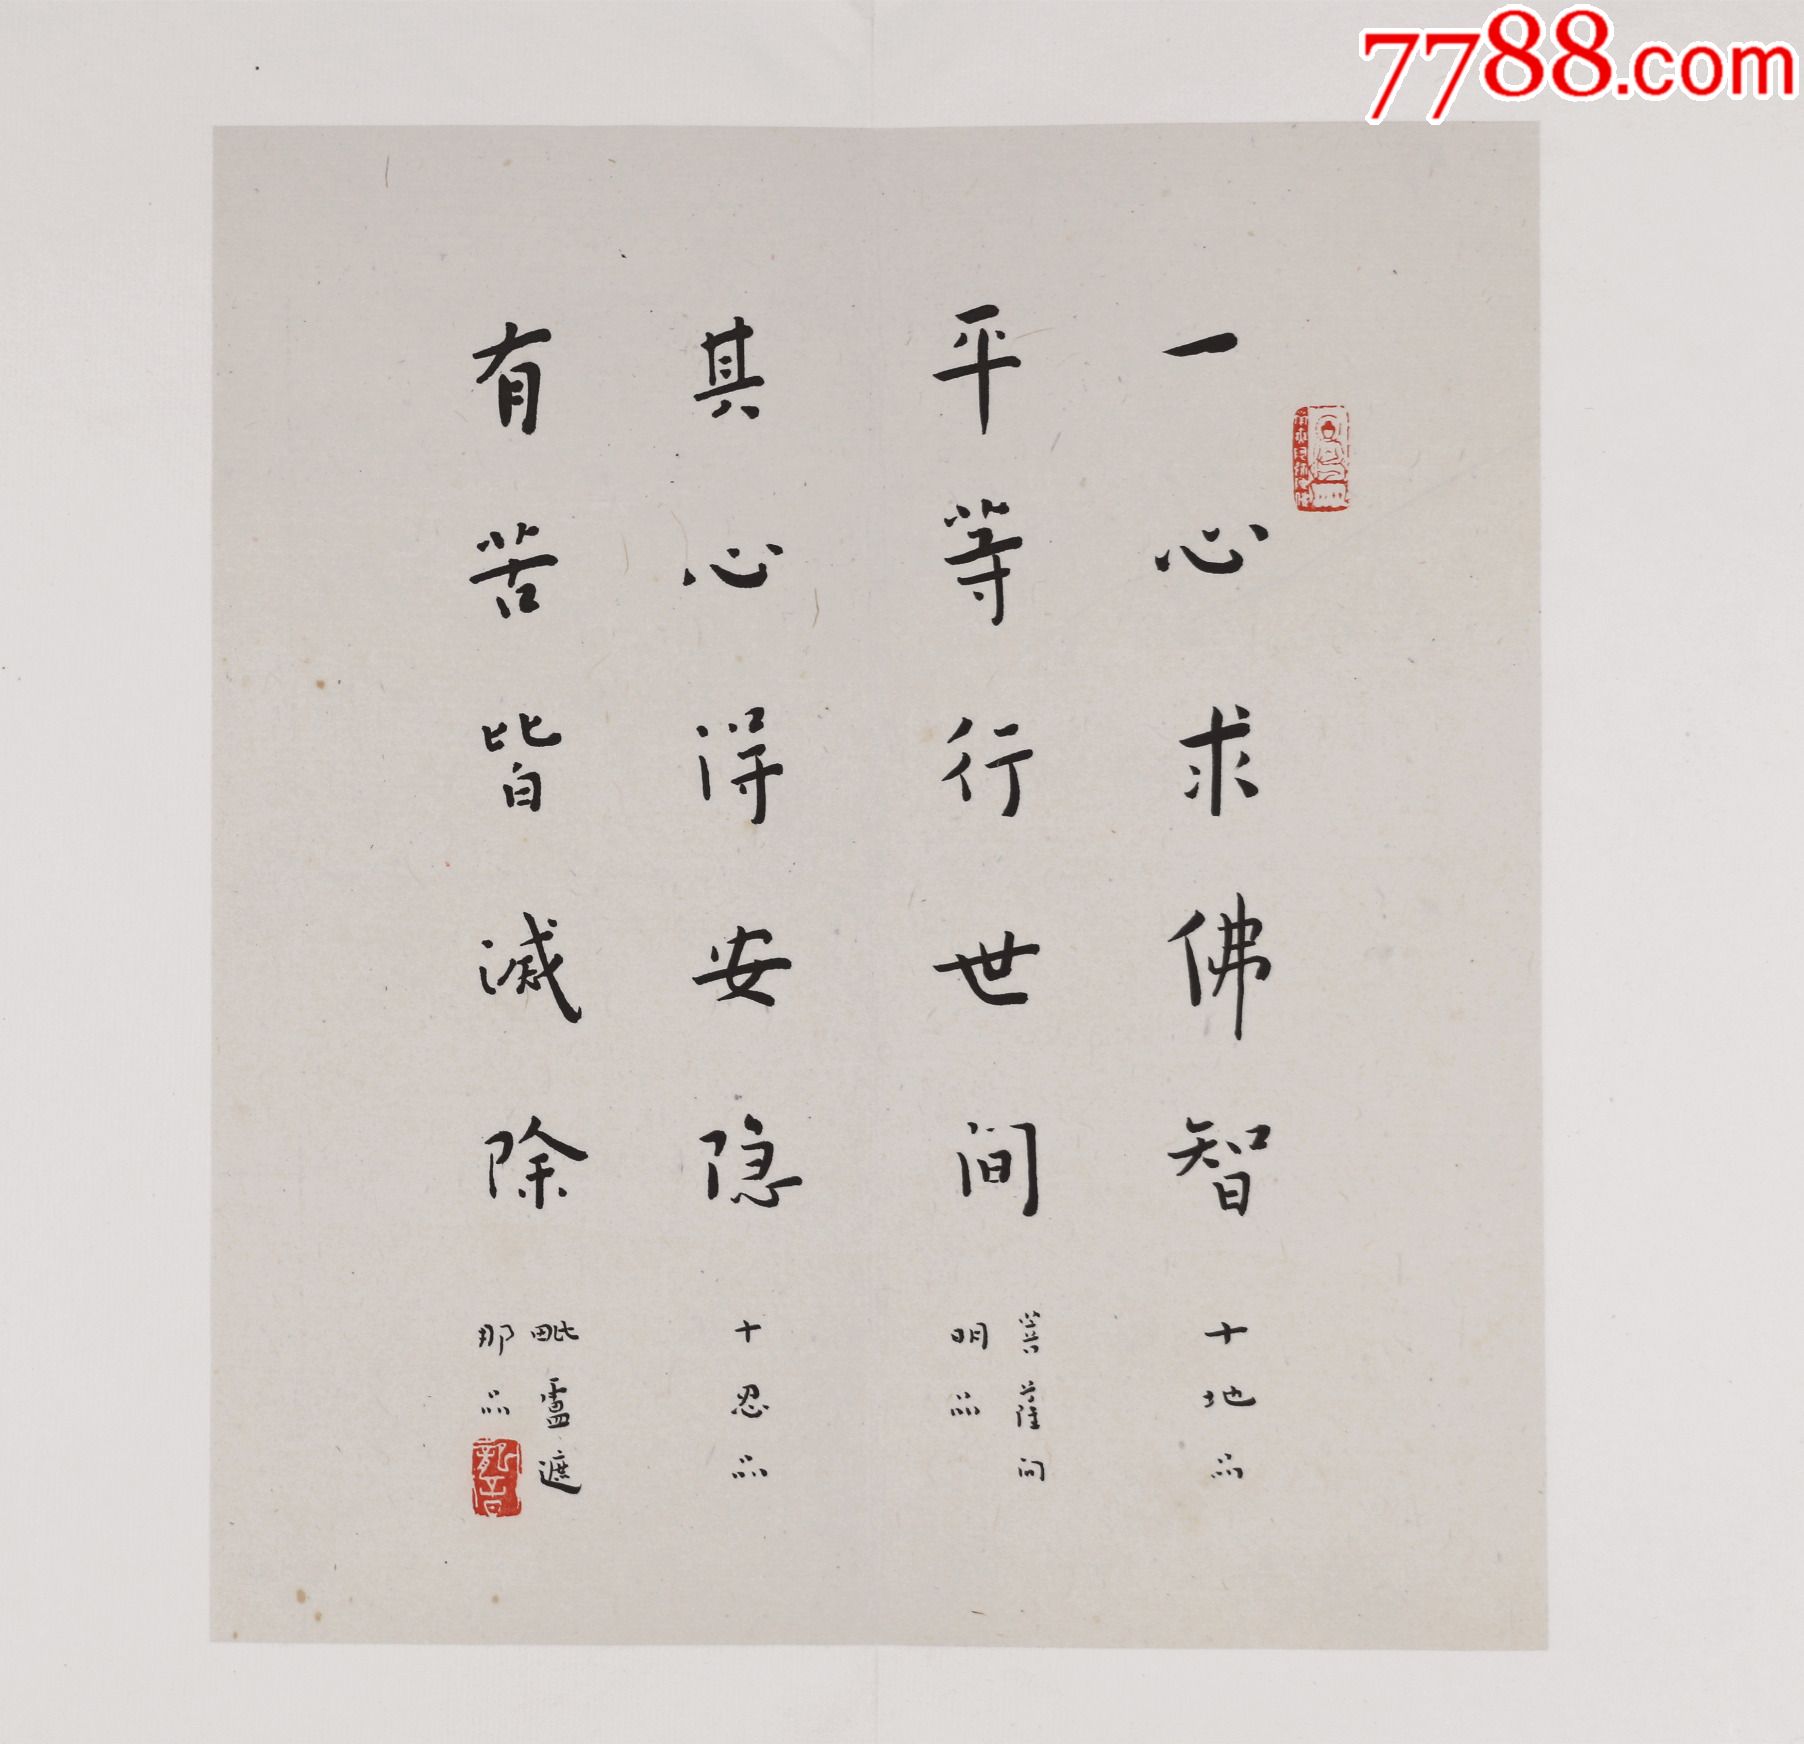 7788.com
一心求佛智
十地品
平等行世间
菩薩问
明品
其心得安隐
十忍品
有苦皆滅除
毗盧遮
那品